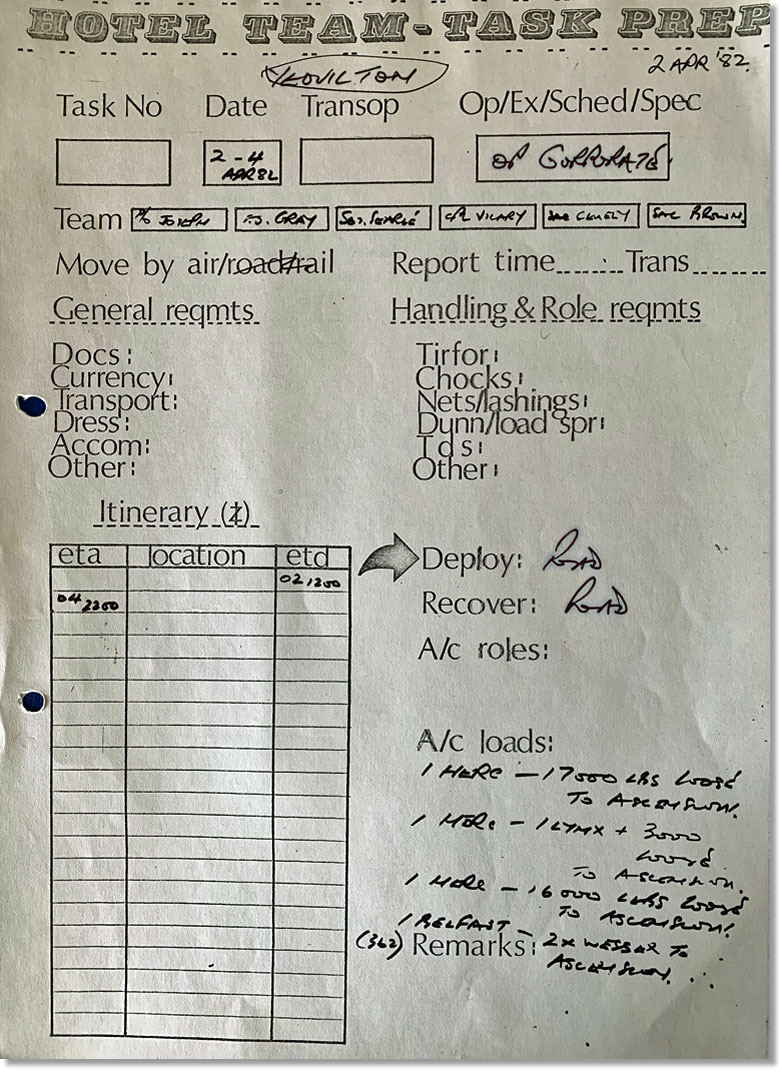 HOTEL TEAM - TASK PREP
YEOVILTON
2 APR '82.
Task No Date Transop Op/Ex/Sched/Spec
2 - 4 APR 82 OP CORPORATE
Team F/O JOSEPH F.S. GRAY SGT. SEARLE CPL VICARY SAC CLUELY SAC BROWN
Move by air/road/rail Report time Trans
General reqmts Handling & Role reqmts
Docs: Tirfor:
Currency: Chocks:
Transport: Nets/lashings:
Dress: Dunn/load spr:
Accom: Tds:
Other: Other:
Itinerary (z)
eta location etd
02 1200
04 2200
Deploy: ROAD
Recover: ROAD
A/c roles:
A/c loads:
1 HERC - 17000 LBS LOOSE
TO ASCENSION.
1 HERC - 1 LYNX + 3000
LOOSE
TO ASCENSION.
1 HERC - 16000 LBS LOOSE
TO ASCENSION.
1 BELFAST -
(362) Remarks: 2X WESSEX TO
ASCENSION.